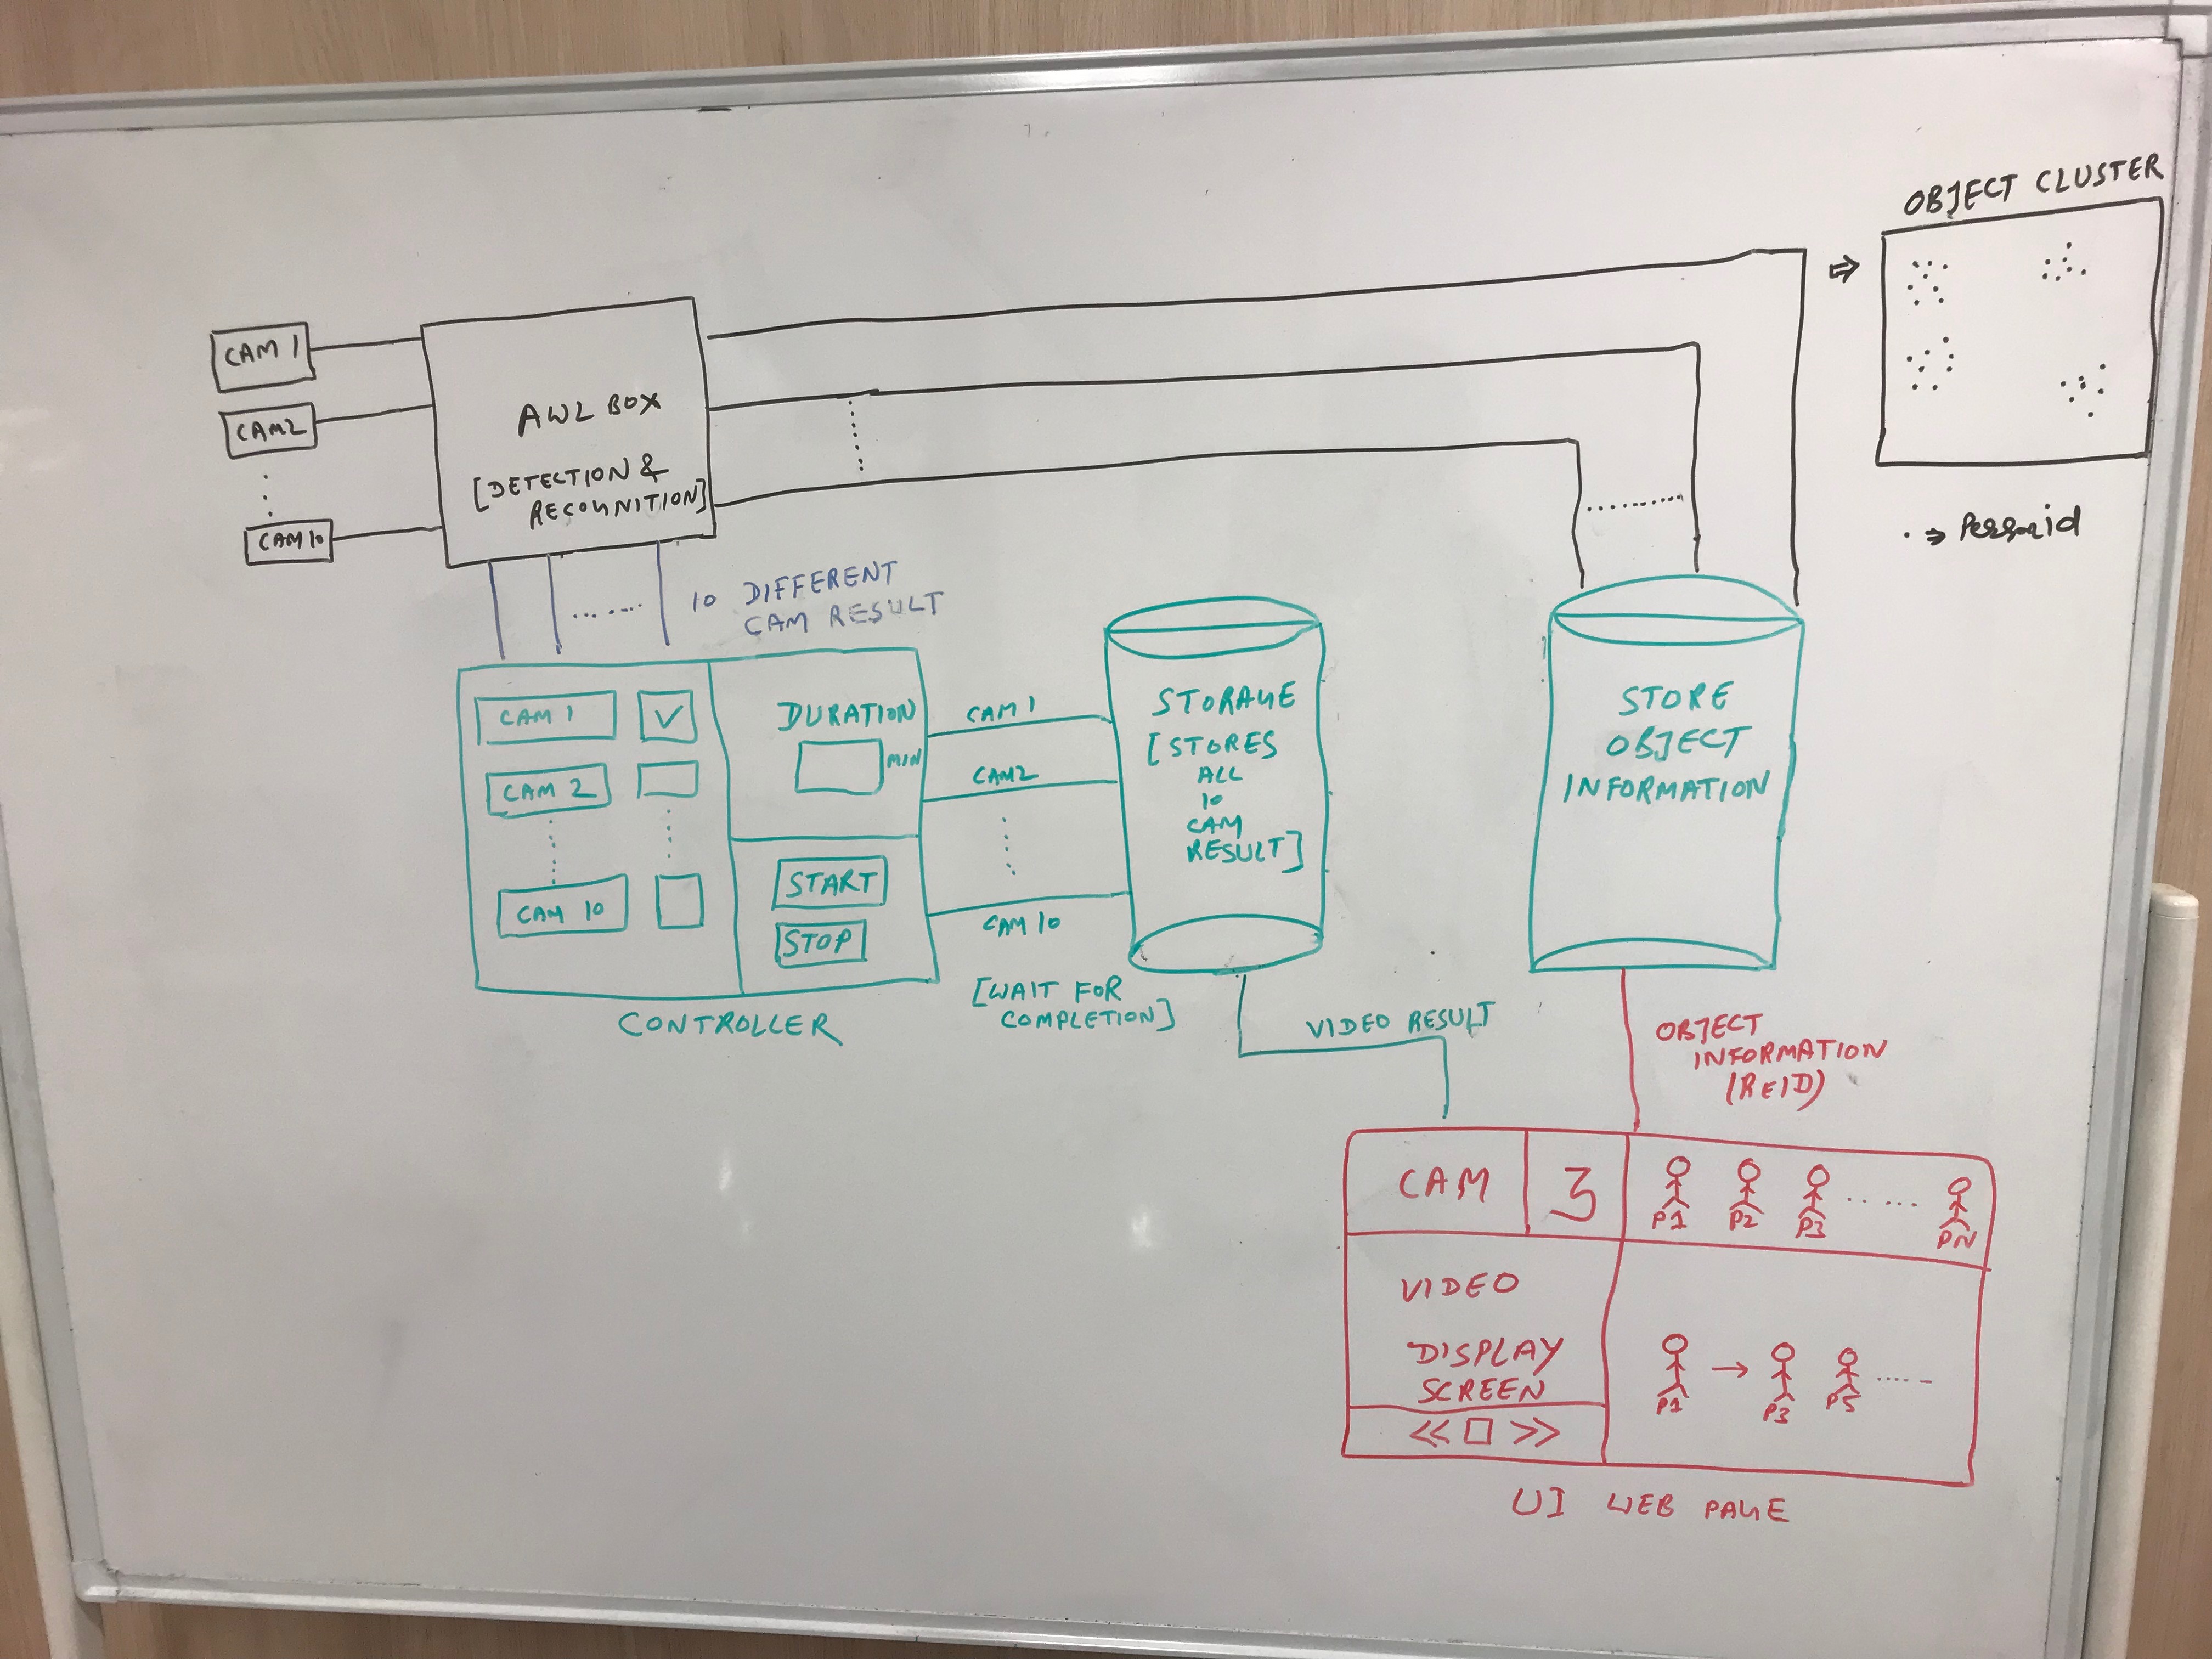 OBJECT CLUSTER
. ⇒ Personid
CAM 1
CAM2
CAM 10
AWL BOX
[DETECTION &
RECOGNITION]
10 DIFFERENT
CAM RESULT
CAM 1
CAM 2
CAM 10
DURATION
MIN
START
STOP
CONTROLLER
CAM 1
CAM2
CAM 10
[WAIT FOR
COMPLETION]
STORAGE
[STORES
ALL
10
CAM
RESULT]
STORE
OBJECT
INFORMATION
VIDEO RESULT
OBJECT
INFORMATION
(REID)
CAM 3
P1 P2 P3 ...... PN
VIDEO
DISPLAY
SCREEN
<< □ >>
P1 → P3 P5 ......
UI WEB PAGE